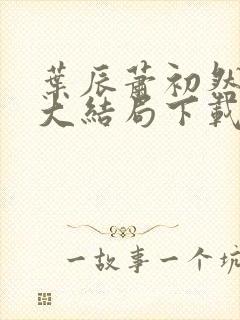 葉辰蕭初然
大結局下載
一故事一个坑